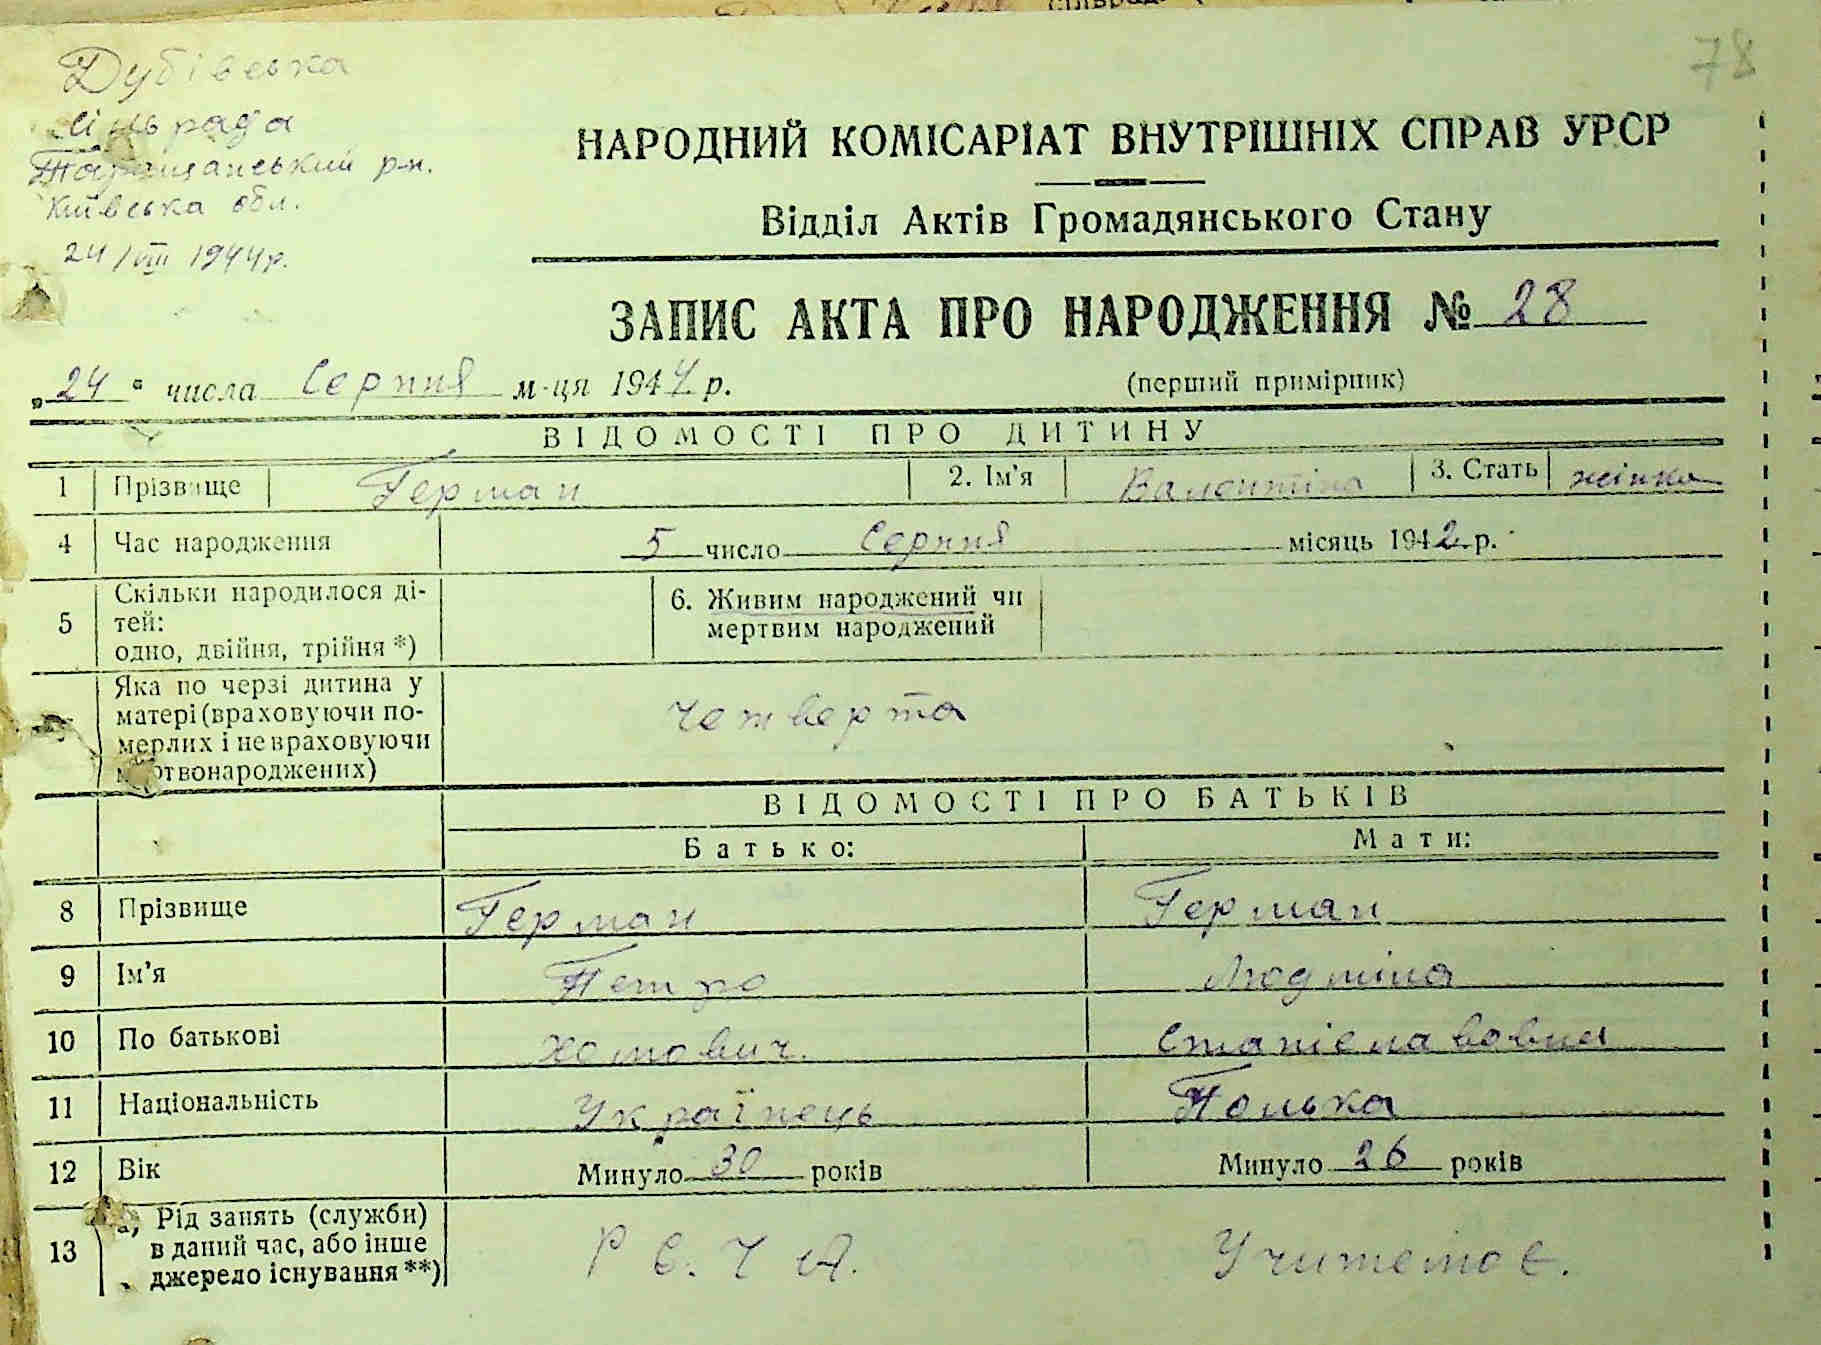 78
Дубівська
сільрада
Таращанський р-н.
Київська обл.
24/VIII 1944р.
НАРОДНИЙ КОМІСАРІАТ ВНУТРІШНІХ СПРАВ УРСР
Відділ Актів Громадянського Стану
ЗАПИС АКТА ПРО НАРОДЖЕННЯ № 28
„24" числа Серпня м-ця 1944 р. (перший примірник)
ВІДОМОСТІ ПРО ДИТИНУ
1 Прізвище Герман 2. Ім'я Валентіна 3. Стать жінка
4 Час народження 5 число Серпня місяць 1942 р.
5 Скільки народилося ді-
тей:
одно, двійня, трійня *)
6. Живим народжений чи
мертвим народжений
Яка по черзі дитина у
матері (враховуючи по-
мерлих і не враховуючи
мертвонароджених)
четверта
ВІДОМОСТІ ПРО БАТЬКІВ
Батько: Мати:
8 Прізвище Герман Герман
9 Ім'я Петро Людміла
10 По батькові Хомович. Станіславовна
11 Національність Українець Полька
12 Вік Минуло 30 років Минуло 26 років
13 а) Рід занять (служби)
в даний час, або інше
джерело існування **)
Р С. Ч А. Учителює.